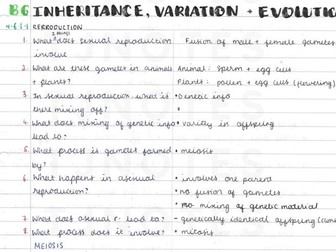 B6 INHERITANCE, VARIATION + EVOLUTIO
4.6.1.1 REPRODUCTION
1. What does sexual reproduction Fusion of male + female gametes
involve
2. What are these gametes in animals Animal: sperm + egg cell
+ plants? Plants: pollen + egg cell (flowering)
3. In sexual reproduction what is • Genetic info
there mixing off?
4. What does mixing of genetic info • variety in offspring
lead to?
5. What process is gametes formed • meiosis
by?
6. What happen in asexual • involves one parent
reproduction? • no fusion of gametes
• no mixing of genetic material
7. What does asexual r. lead to? - genetically identical offspring
8. What process does it involve? • mitosis
MEIOSIS